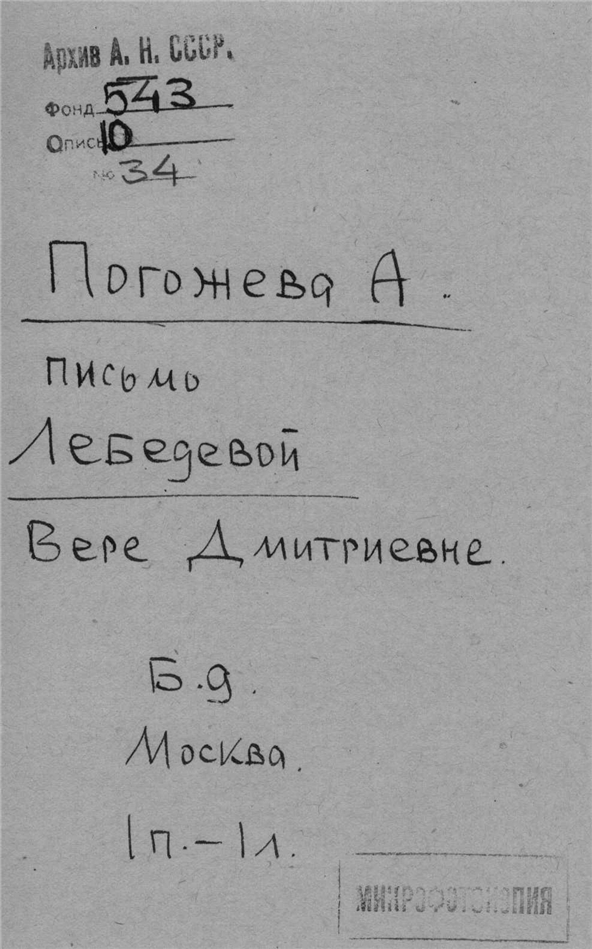 Архив А. Н. СССР.
Фонд 543
Опись 10
№ 34
Погожева А.
письмо
Лебедевой
Вере Дмитриевне.
Б.д.
Москва.
1п.-1л.